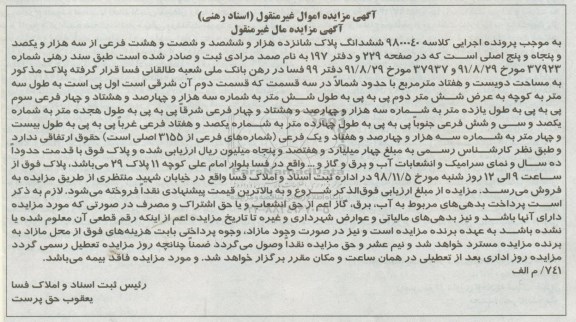 آگهی مزایده اموال غیرمنقول (اسناد رهنی)
آگهی مزایده مال غیرمنقول
به موجب پرونده اجرایی کلاسه ۹۸۰۰۰۴۰ ششدانگ پلاک شانزده هزار و ششصد و شصت و هشت فرعی از سه هزار و یکصد
و پنجاه و پنج اصلی است که در صفحه ۲۲۹ و دفتر ۱۹۷ به نام صمد مرادی ثبت و صادر شده است طبق سند رهنی شماره
۳۷۹۲۳ مورخ ۹۱/۸/۲۹ و ۳۷۹۳۷ مورخ ۹۱/۸/۲۹ دفتر ۹۹ فسا در رهن بانک ملی شعبه طالقانی فسا قرار گرفته پلاک مذکور
به مساحت دویست و هفتاد مترمربع با حدود شمالاً در سه قسمت که قسمت دوم آن شرقی است اول پی است به طول سه
متر به کوچه به عرض شش متر دوم پی به پی به طول شش متر به شماره سه هزار و چهارصد و هشتاد و چهار فرعی سوم
پی به پی به طول یازده متر به شماره سه هزار و چهارصد و هشتاد و چهار فرعی شرقاً پی به پی به طول هجده متر به شماره
یکصد و سی و شش فرعی جنوباً پی به پی به طول چهارده متر به شماره یکصد و هفتاد فرعی غرباً پی به پی به طول بیست
و چهار متر به شماره سه هزار و چهارصد و هفتاد و یک فرعی (شماره‌های فرعی از ۳۱۵۵ اصلی است) حقوق ارتفاقی ندارد
و طبق نظر کارشناس رسمی به مبلغ چهار میلیارد و هفتصد و پنجاه میلیون ریال ارزیابی شده و پلاک فوق با قدمت حدوداً
ده سال و نمای سرامیک و انشعابات آب و برق و گاز و... واقع در فسا بلوار امام علی کوچه ۱۱ پلاک ۲۹ می‌باشد. پلاک فوق از
ساعت ۹ الی ۱۲ روز شنبه مورخ ۹۸/۱۱/۵ در اداره ثبت اسناد و املاک فسا واقع در خیابان شهید منتظری از طریق مزایده به
فروش می‌رسد. مزایده از مبلغ ارزیابی فوق‌الذکر شروع و به بالاترین قیمت پیشنهادی نقداً فروخته می‌شود. لازم به ذکر
است پرداخت بدهی‌های مربوط به آب، برق، گاز اعم از حق انشعاب و یا حق اشتراک و مصرف در صورتی که مورد مزایده
دارای آنها باشد و نیز بدهی‌های مالیاتی و عوارض شهرداری و غیره تا تاریخ مزایده اعم از اینکه رقم قطعی آن معلوم شده یا
نشده باشد به عهده برنده مزایده است و نیز در صورت وجود مازاد، وجوه پرداختی بابت هزینه‌های فوق از محل مازاد به
برنده مزایده مسترد خواهد شد و نیم عشر و حق مزایده نقداً وصول می‌گردد ضمناً چنانچه روز مزایده تعطیل رسمی گردد
مزایده روز اداری بعد از تعطیلی در همان ساعت و مکان مقرر برگزار خواهد شد. و مورد مزایده فاقد بیمه می‌باشد.
۷۴۱/ م الف
رئیس ثبت اسناد و املاک فسا
یعقوب حق پرست